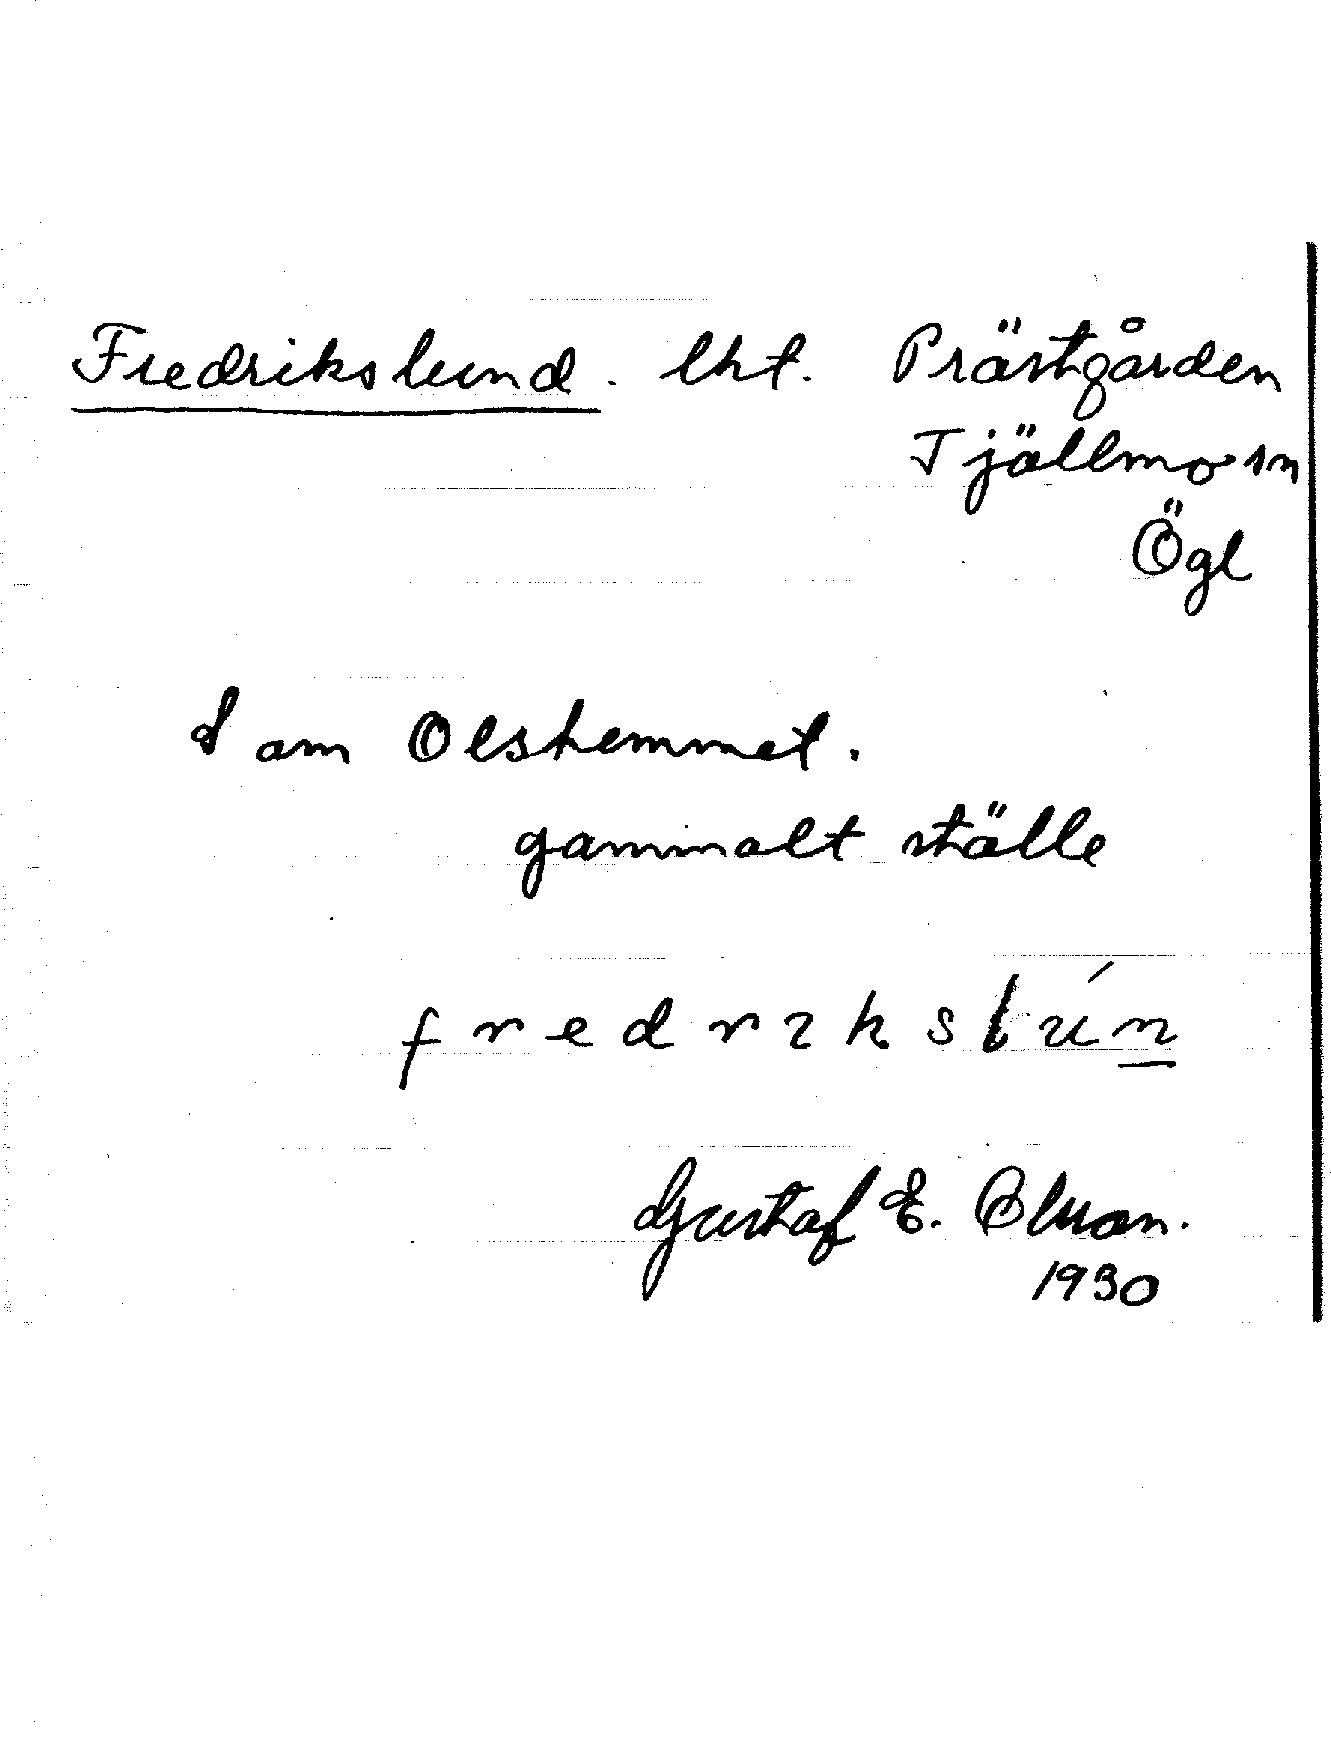 Fredrikslund. lht. Prästgården
Tjällmo sn
Ögl
S am Olshemmet.
gammalt ställe
fredrikslún
Gustaf E.
1930